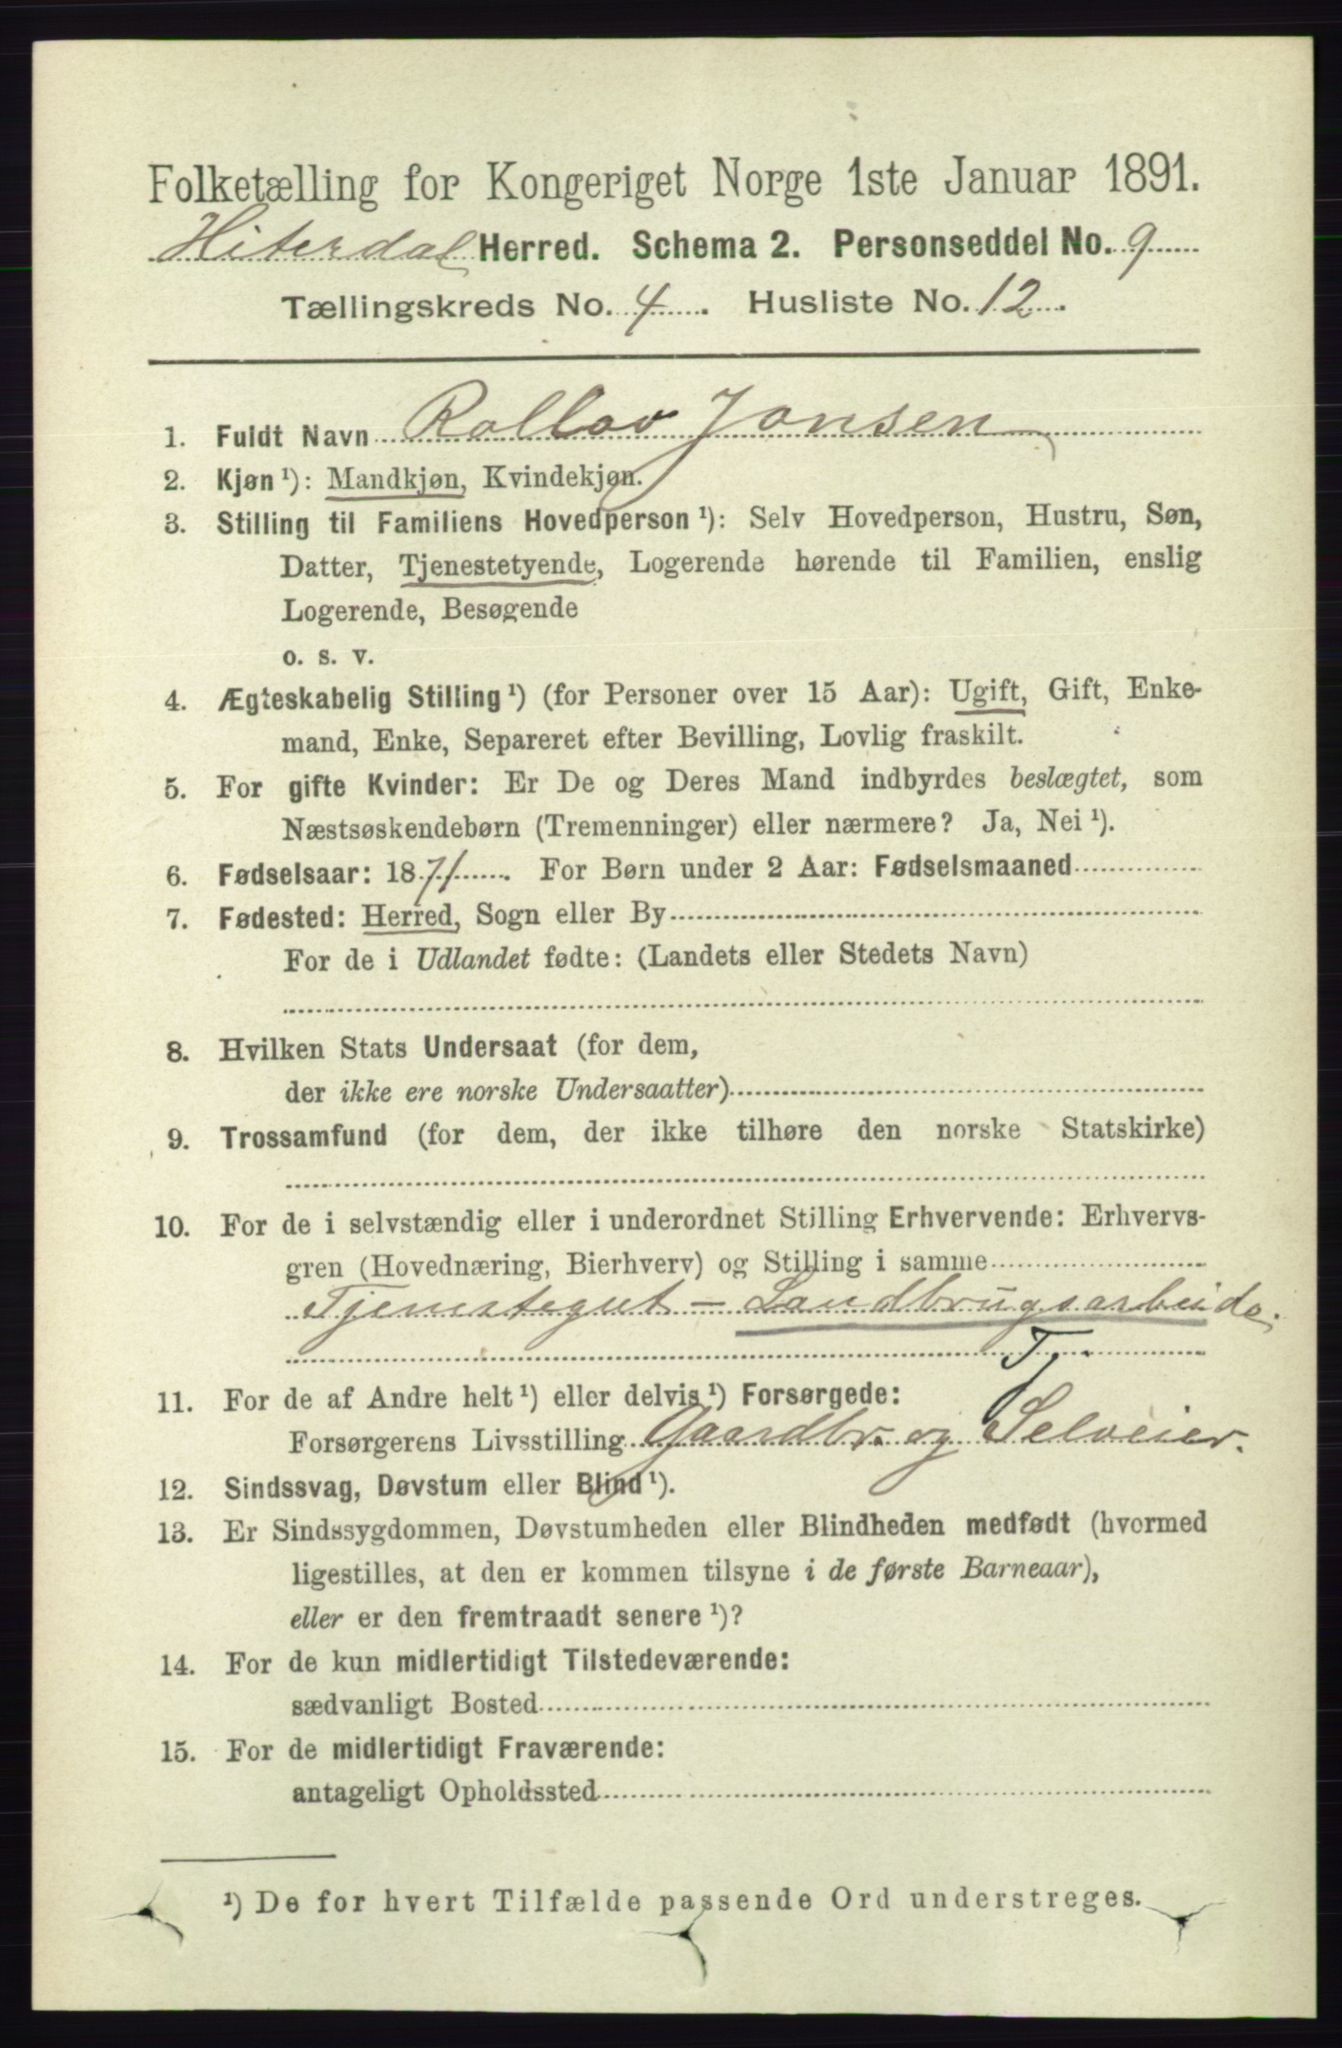 Folketælling for Kongeriget Norge 1ste Januar 1891.
Hiterdal Herred. Schema 2. Personseddel No. 9
Tællingskreds No. 4. Husliste No. 12.
1. Fuldt Navn Rollov Jonsen
2. Kjøn¹): Mandkjøn, Kvindekjøn.
3. Stilling til Familiens Hovedperson¹): Selv Hovedperson, Hustru, Søn,
Datter, Tjenestetyende, Logerende hørende til Familien, enslig
Logerende, Besøgende
o. s. v.
4. Ægteskabelig Stilling¹) (for Personer over 15 Aar): Ugift, Gift, Enke-
mand, Enke, Separeret efter Bevilling, Lovlig fraskilt.
5. For gifte Kvinder: Er De og Deres Mand indbyrdes beslægtet, som
Næstsøskendebørn (Tremenninger) eller nærmere? Ja, Nei¹).
6. Fødselsaar: 1871. For Børn under 2 Aar: Fødselsmaaned
7. Fødested: Herred, Sogn eller By
For de i Udlandet fødte: (Landets eller Stedets Navn)
8. Hvilken Stats Undersaat (for dem,
der ikke ere norske Undersaatter)
9. Trossamfund (for dem, der ikke tilhøre den norske Statskirke)
10. For de i selvstændig eller i underordnet Stilling Erhvervende: Erhvervs-
gren (Hovednæring, Bierhverv) og Stilling i samme
Tjenestegut - Landbrugsarbeide.
T
11. For de af Andre helt¹) eller delvis¹) Forsørgede:
Forsørgerens Livsstilling Gaardbr. og Selveier.
12. Sindssvag, Døvstum eller Blind¹).
13. Er Sindssygdommen, Døvstumheden eller Blindheden medfødt (hvormed
ligestilles, at den er kommen tilsyne i de første Barneaar),
eller er den fremtraadt senere¹)?
14. For de kun midlertidigt Tilstedeværende:
sædvanligt Bosted
15. For de midlertidigt Fraværende:
antageligt Opholdssted
¹) De for hvert Tilfælde passende Ord understreges.